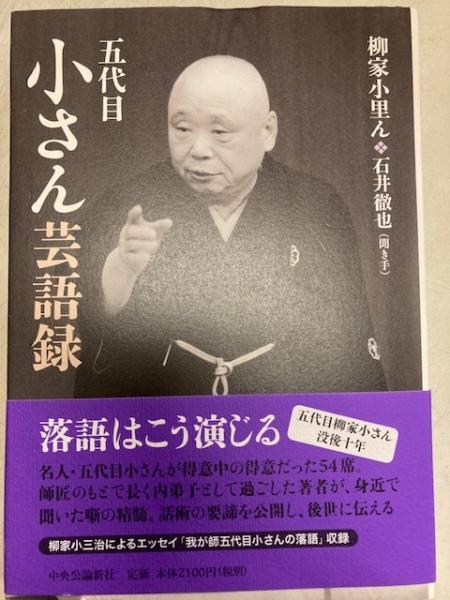 柳家小里ん※石井徹也(聞き手)
五代目
小さん芸語録
落語はこう演じる
五代目柳家小さん
没後十年
名人・五代目小さんが得意中の得意だった54席。
師匠のもとで長く内弟子として過ごした著者が、身近で
聞いた噺の精髄。話術の要諦を公開し、後世に伝える
柳家小三治によるエッセイ「我が師五代目小さんの落語」収録
中央公論新社 定価 本体2100円(税別)